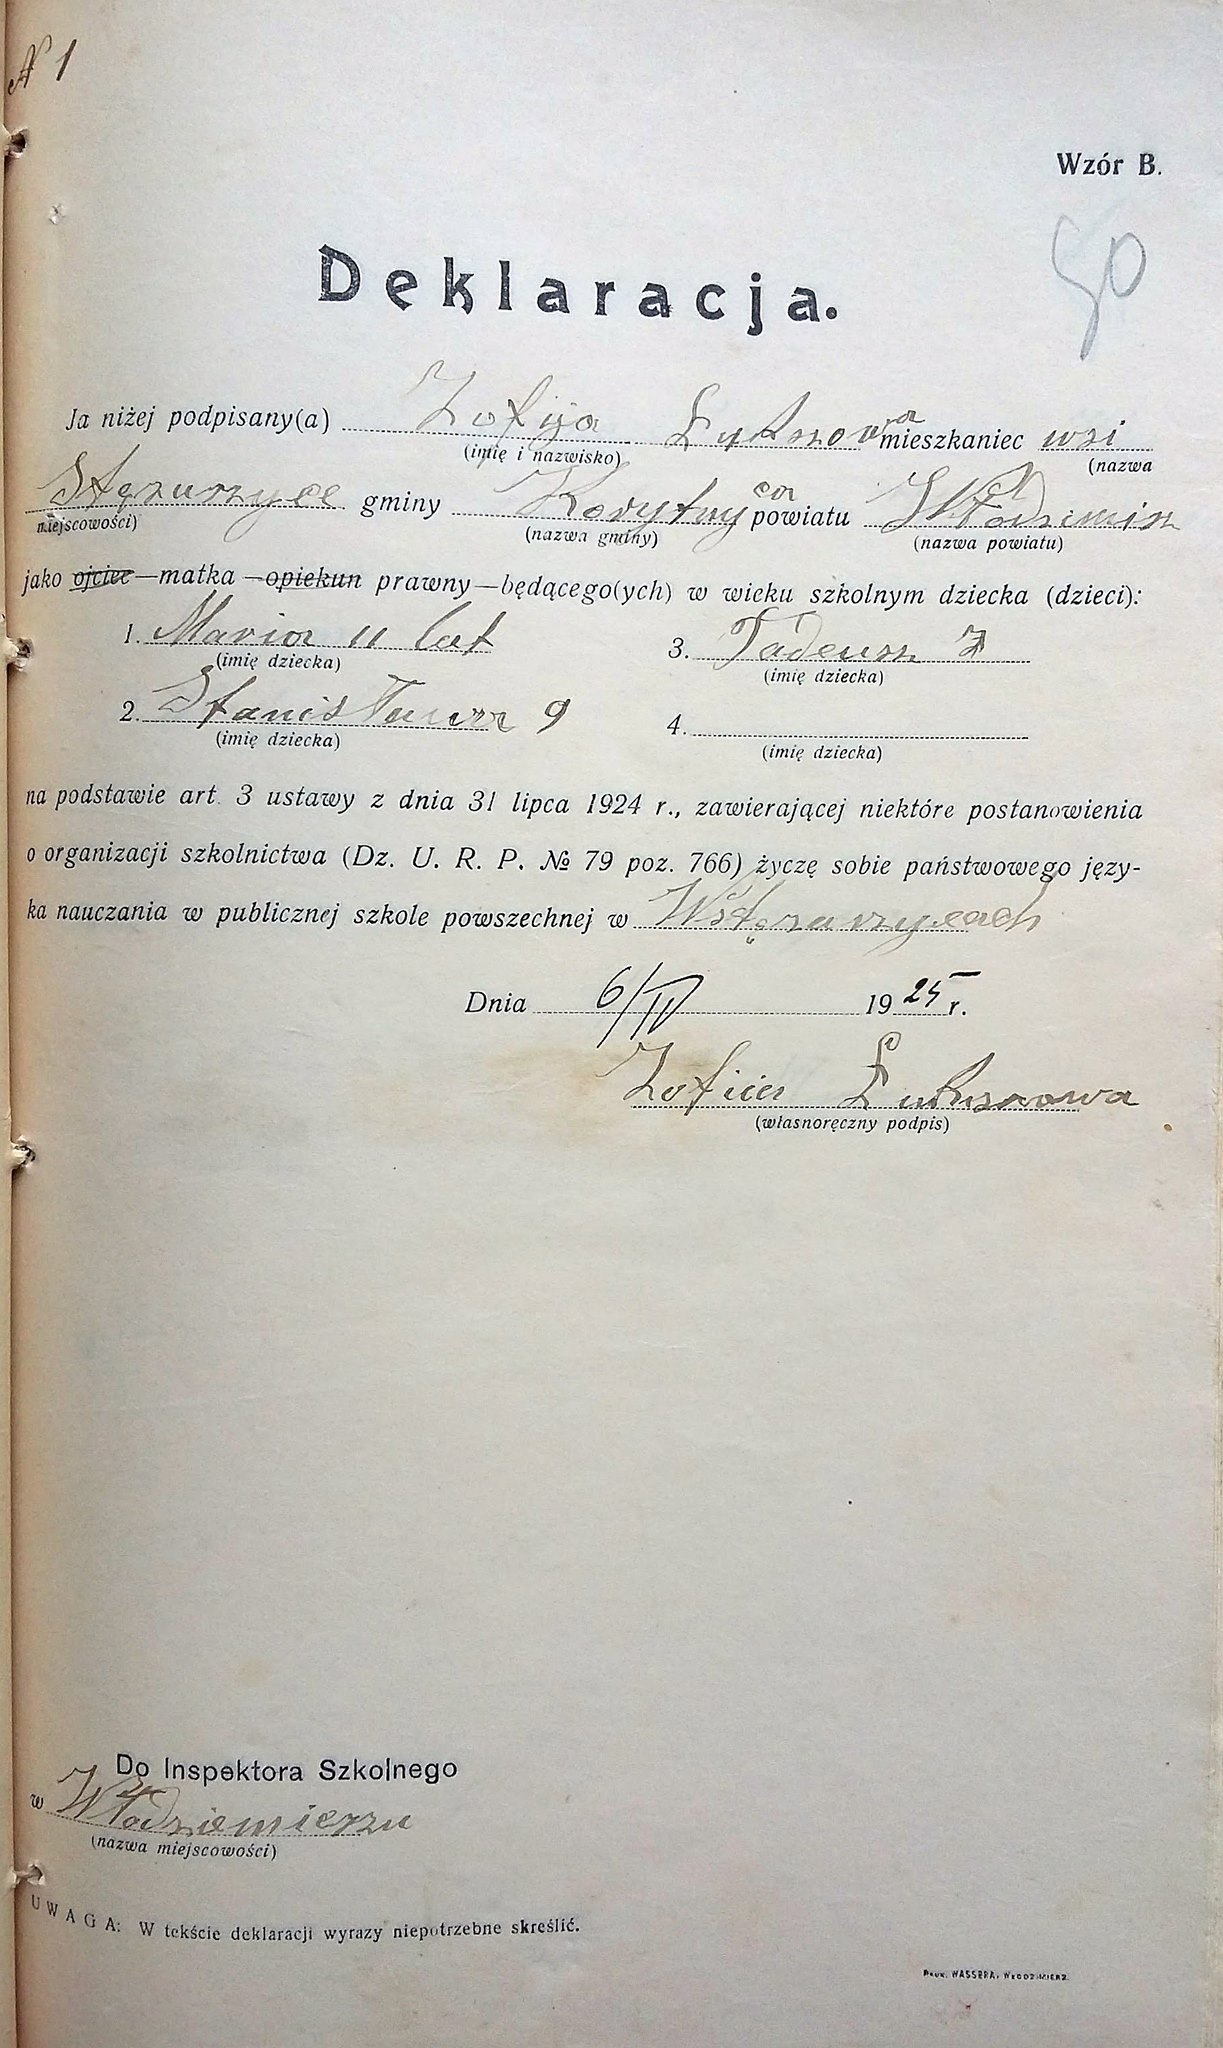 N 1
Wzór B.
50
Deklaracja.
Ja niżej podpisany(a) Zofija mieszkaniec wsi
(imię i nazwisko)
(nazwa
gminy powiatu
miejscowości)
(nazwa gminy)
(nazwa powiatu)
jako ojciec—matka—opiekun prawny—będącego(ych) w wieku szkolnym dziecka (dzieci):
1. Maria 11 lat
(imię dziecka)
3. Tadeusz 7
(imię dziecka)
2. Stanisława 9
(imię dziecka)
4.
(imię dziecka)
na podstawie art. 3 ustawy z dnia 31 lipca 1924 r., zawierającej niektóre postanowienia
o organizacji szkolnictwa (Dz. U. R. P. № 79 poz. 766) życzę sobie państwowego języ-
ka nauczania w publicznej szkole powszechnej w
Dnia 6/IV 1925 r.
Zofia
(własnoręczny podpis)
Do Inspektora Szkolnego
w Włodziemierzu
(nazwa miejscowości)
UWAGA: W tekście deklaracji wyrazy niepotrzebne skreślić.
Druk. WASSERA, WŁODZIMIERZ.